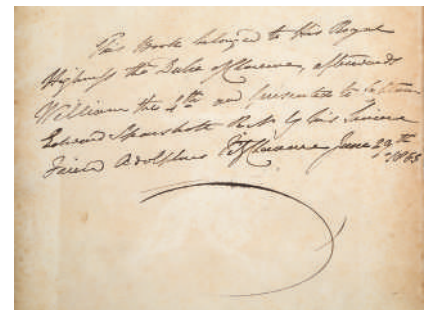 This Book belonged to His Royal
Highness the Duke of Clarence, afterwards
William the 4th and presented to Captain
Edward Sparshott R.N. by his Sincere
Friend Adolphus FitzClarence June 29th
1855